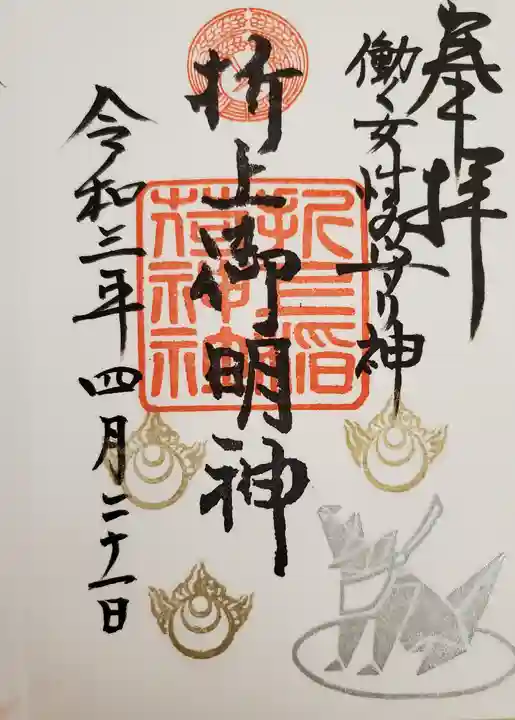 奉拝
働く女性の守り神
折上御明神
折上稲
荷神社
令和三年四月二十一日